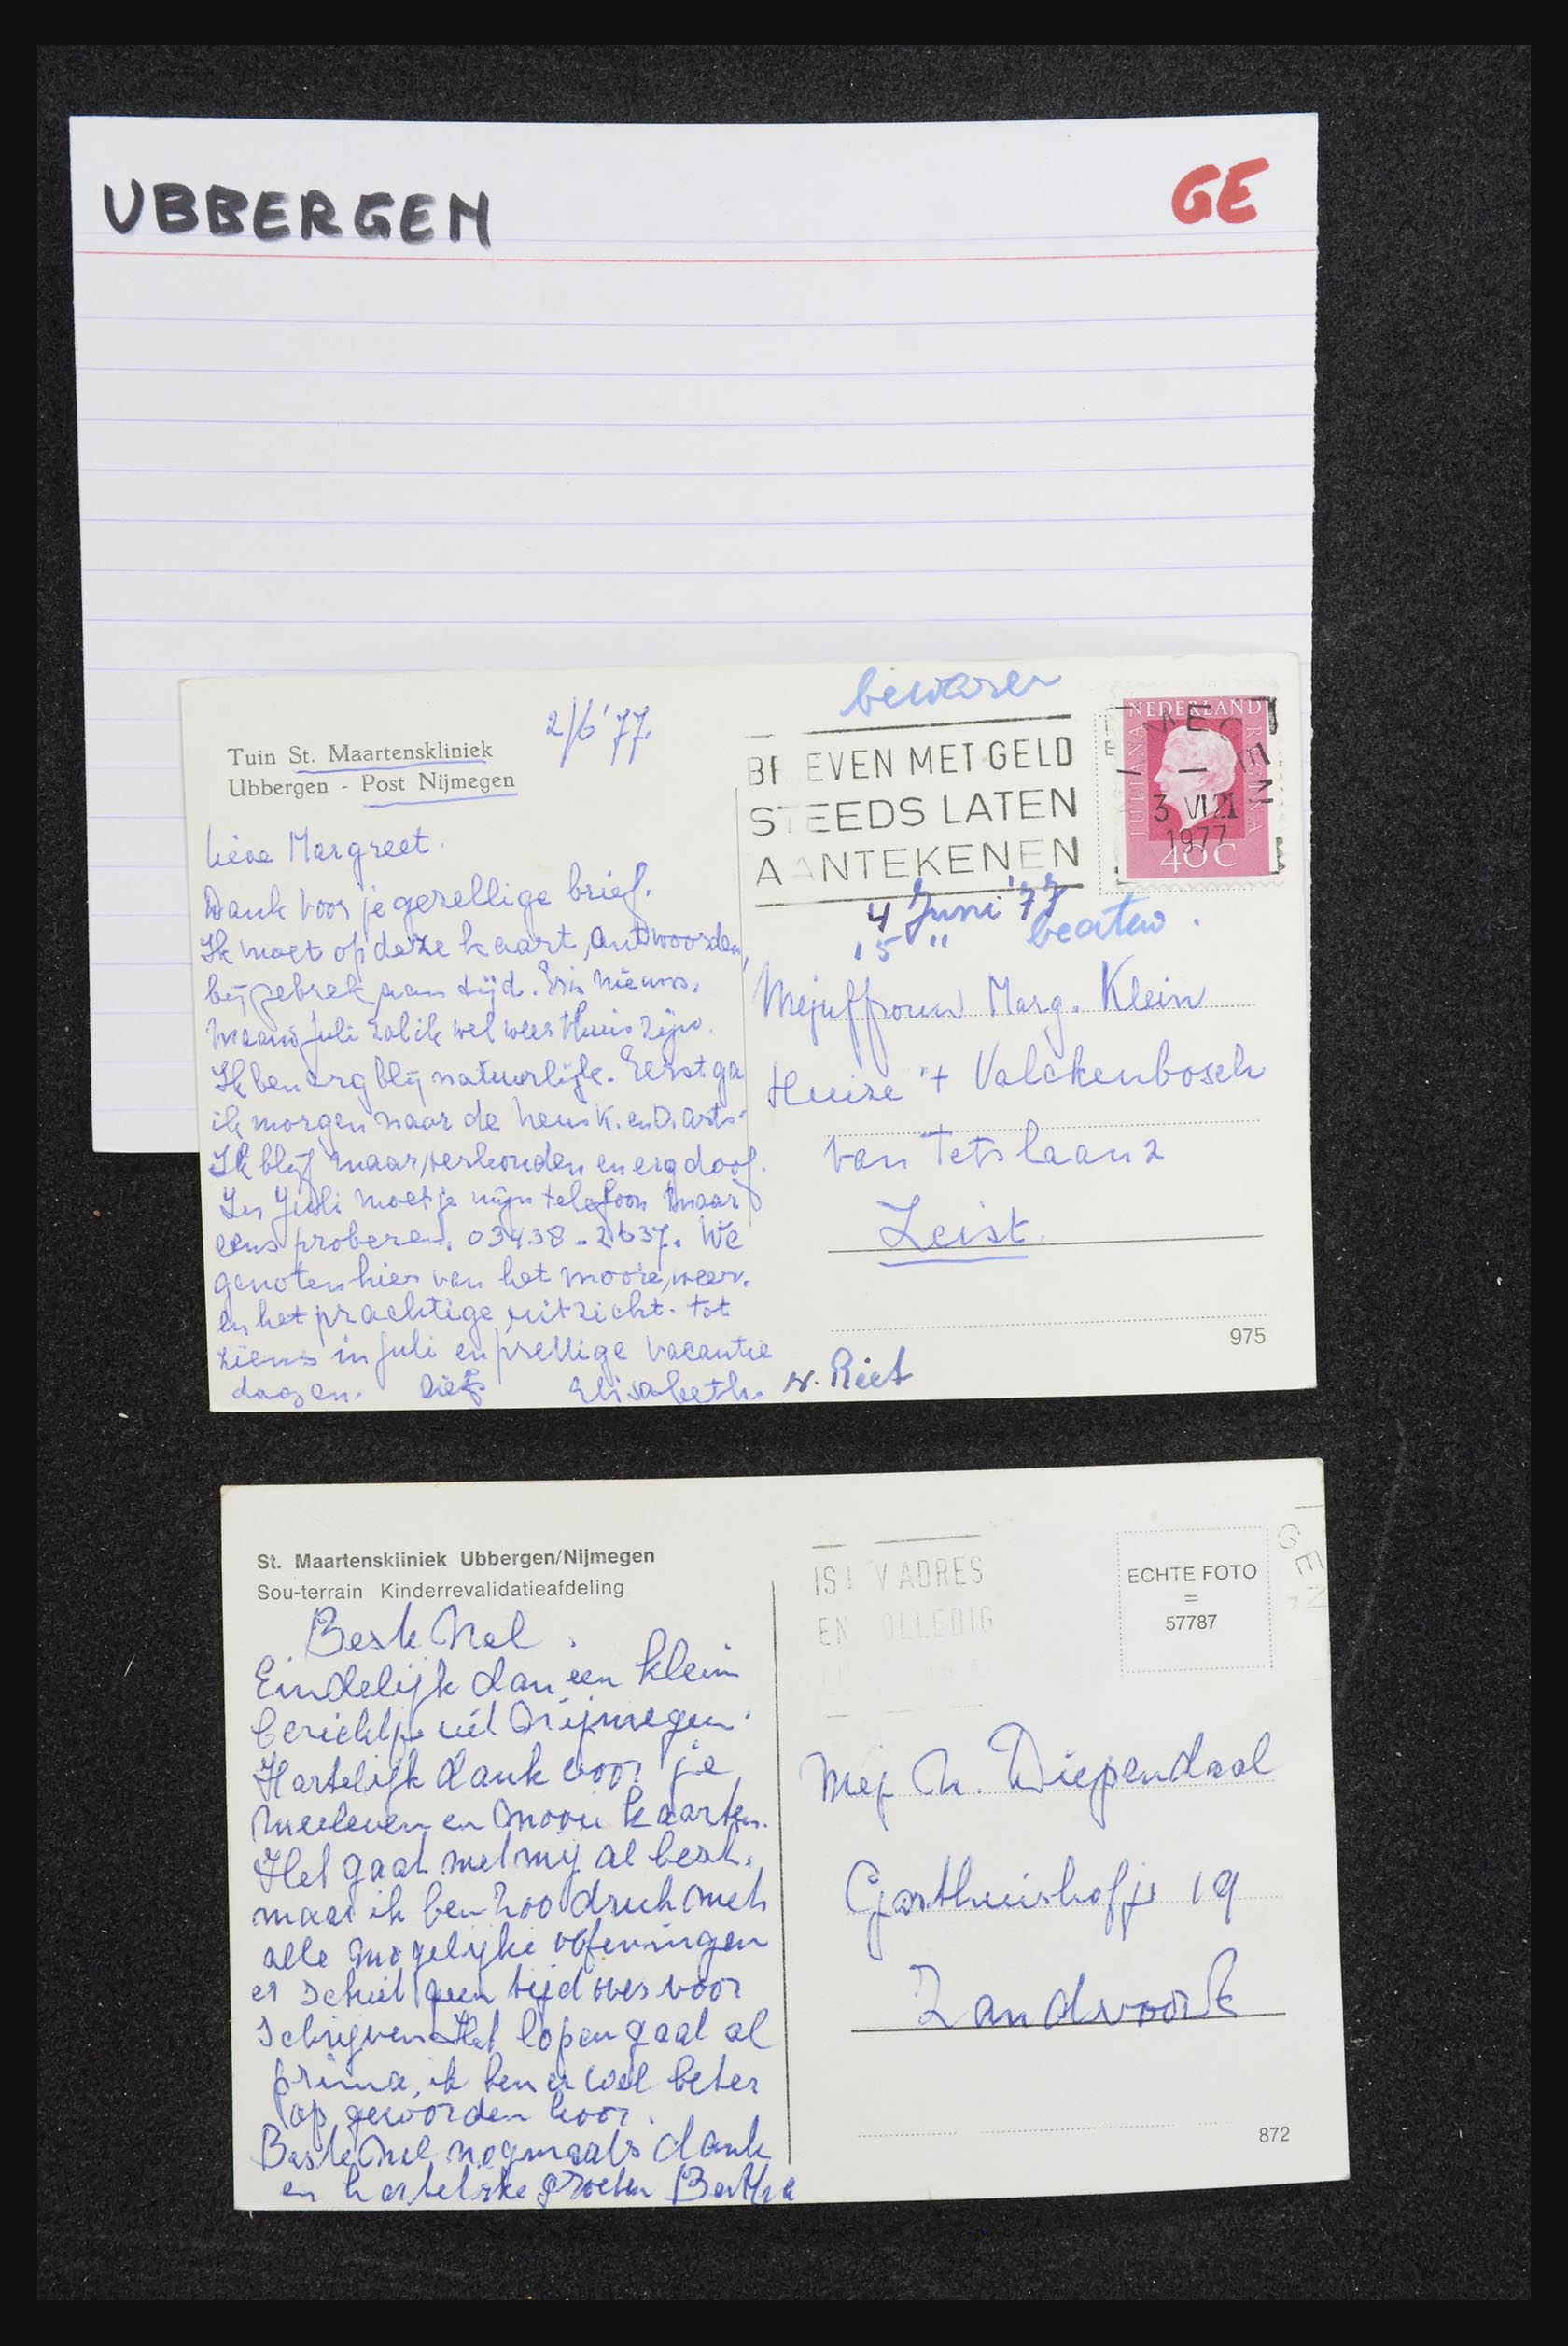 UBBERGEN
GE
bewaren
2/6 '77.
Tuin St. Maartenskliniek
Ubbergen - Post Nijmegen
BR EVEN MET GELD
ST EEDS LATEN
A ANTEKENEN
NEDERLAND
JULIANA REGINA
3 VI 21
1977
40 C
4 Juni '77
15 "
Lieve Margreet.
Dank voor je gezellige brief.
Ik moet op deze kaart, antwoorden,
bij gebrek aan tijd. Er is nieuws.
Maand Juli zal ik wel weer thuis zijn.
Ik ben erg blij natuurlijk. Eerst ga
ik morgen naar de neus K. en O. arts.
Ik blijf maar verkouden en erg doof.
In Juli moet je mijn telefoon maar
eens proberen. 03438-2637. We
genoten hier van het mooie weer.
en het prachtige uitzicht. tot
ziens in Juli en prettige vacantie
dagen. Elisabeth.
Riet
Mejuffrouw Marg. Klein
Huize 't Valckenbosch
van Tetslaan 2
Zeist.
975
St. Maartenskliniek Ubbergen/Nijmegen
Sou-terrain Kinderrevalidatieafdeling
IS V ADRES
EN OLLEDIG
GEN
ECHTE FOTO
=
57787
Beste Nel.
Eindelijk dan een klein
berichtje uit Nijmegen.
Hartelijk dank voor je
meeleven en mooie kaarten.
Het gaat met mij al best,
maar ik ben zoo druk met
alle mogelijke oefeningen
er schiet geen tijd over voor
schrijven. Het lopen gaat al
prima, ik ben er wel beter
op geworden hoor.
Beste Nel nogmaals dank
en hartelijke groeten Bertha
Mej N. Diependaal
Gasthuishofje 19
Zandvoort
872